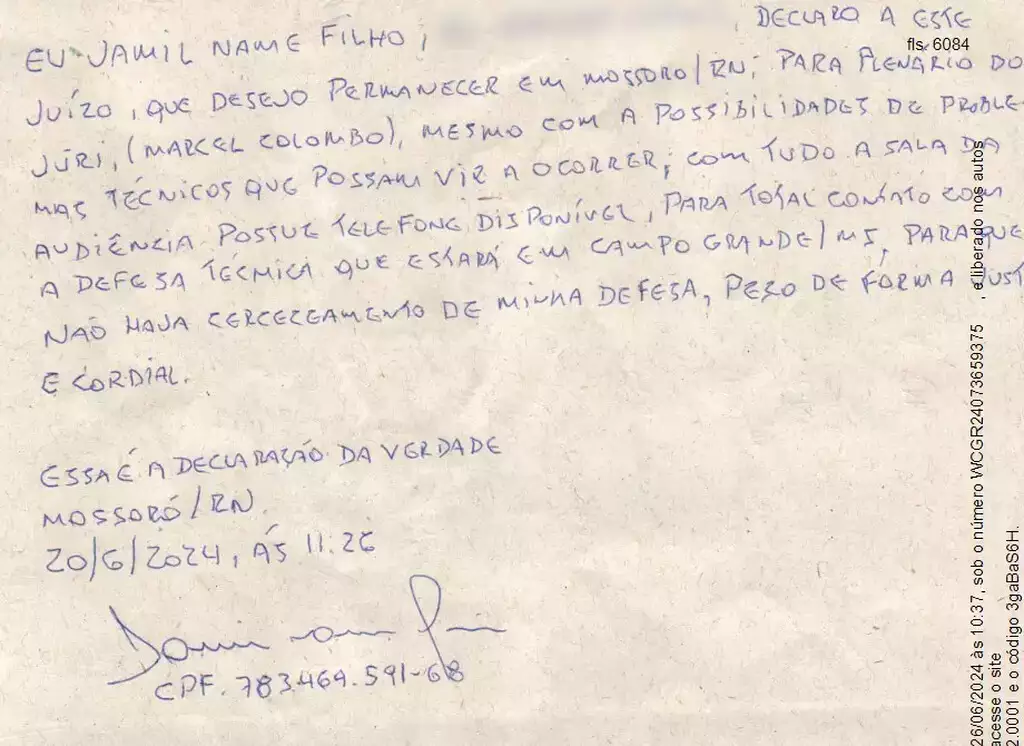 DECLARO A ESTE
EU JAMIL NAME FILHO,
fls. 6084
JUÍZO, QUE DESEJO PERMANECER EM MOSSORO/RN, PARA PLENÁRIO DO
JÚRI, (MARCEL COLOMBO), MESMO COM A POSSIBILIDADES DE PROBLE-
MAS TÉCNICOS QUE POSSAM VIR A OCORRER, COM TUDO A SALA DA
AUDIÊNCIA POSSUE TELEFONE DISPONÍVEL, PARA TOTAL CONTATO COM
A DEFESA TÉCNICA QUE ESTARÁ EM CAMPO GRANDE/MS, PARA QUE
NAÕ HAJA CERCECEAMENTO DE MINHA DEFESA, PEÇO DE FORMA JUST
E CORDIAL.
ESSA É A DECLARAÇÃO DA VERDADE
MOSSORÓ/RN.
20/6/2024, ÁS 11.26
CPF. 783.469.591-68
26/06/2024 às 10:37, sob o número WCGR24073659375 , e liberado nos autos
acesse o site
2.0001 e o código 3gaBaS6H.